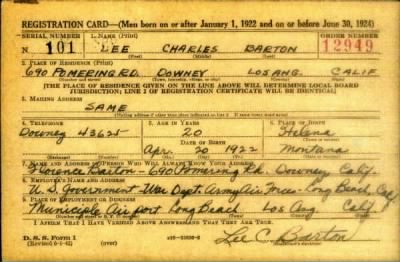 REGISTRATION CARD—(Men born on or after January 1, 1922 and on or before June 30, 1924)
SERIAL NUMBER 1. NAME (Print) ORDER NUMBER
N 101 LEE CHARLES BARTON 12949
(First) (Middle) (Last)
2. PLACE OF RESIDENCE (Print)
690 POMERING RD. DOWNEY LOS ANG. CALIF
(Number and street) (Town, township, village, or city) (County) (State)
[THE PLACE OF RESIDENCE GIVEN ON THE LINE ABOVE WILL DETERMINE LOCAL BOARD
JURISDICTION; LINE 2 OF REGISTRATION CERTIFICATE WILL BE IDENTICAL]
3. MAILING ADDRESS
SAME
4. TELEPHONE 5. AGE IN YEARS 6. PLACE OF BIRTH
Downey 43625 20 Helena
DATE OF BIRTH
Apr. 20 1922 Montana
(Exchange) (Number) (Mo.) (Day) (Yr.) (State or country)
7. NAME AND ADDRESS OF PERSON WHO WILL ALWAYS KNOW YOUR ADDRESS
Florence Barton - 690 Pomering Rd. Downey Calif.
8. EMPLOYER'S NAME AND ADDRESS
U.S. Government War Dept. Army Air Forces - Long Beach, Cal
9. PLACE OF EMPLOYMENT OR BUSINESS
Municiple Air port Long Beach Los Ang Calif
I AFFIRM THAT I HAVE VERIFIED ABOVE ANSWERS AND THAT THEY ARE TRUE.
D. S. S. Form 1
(Revised 6-1-42) (over)
Lee C. Barton